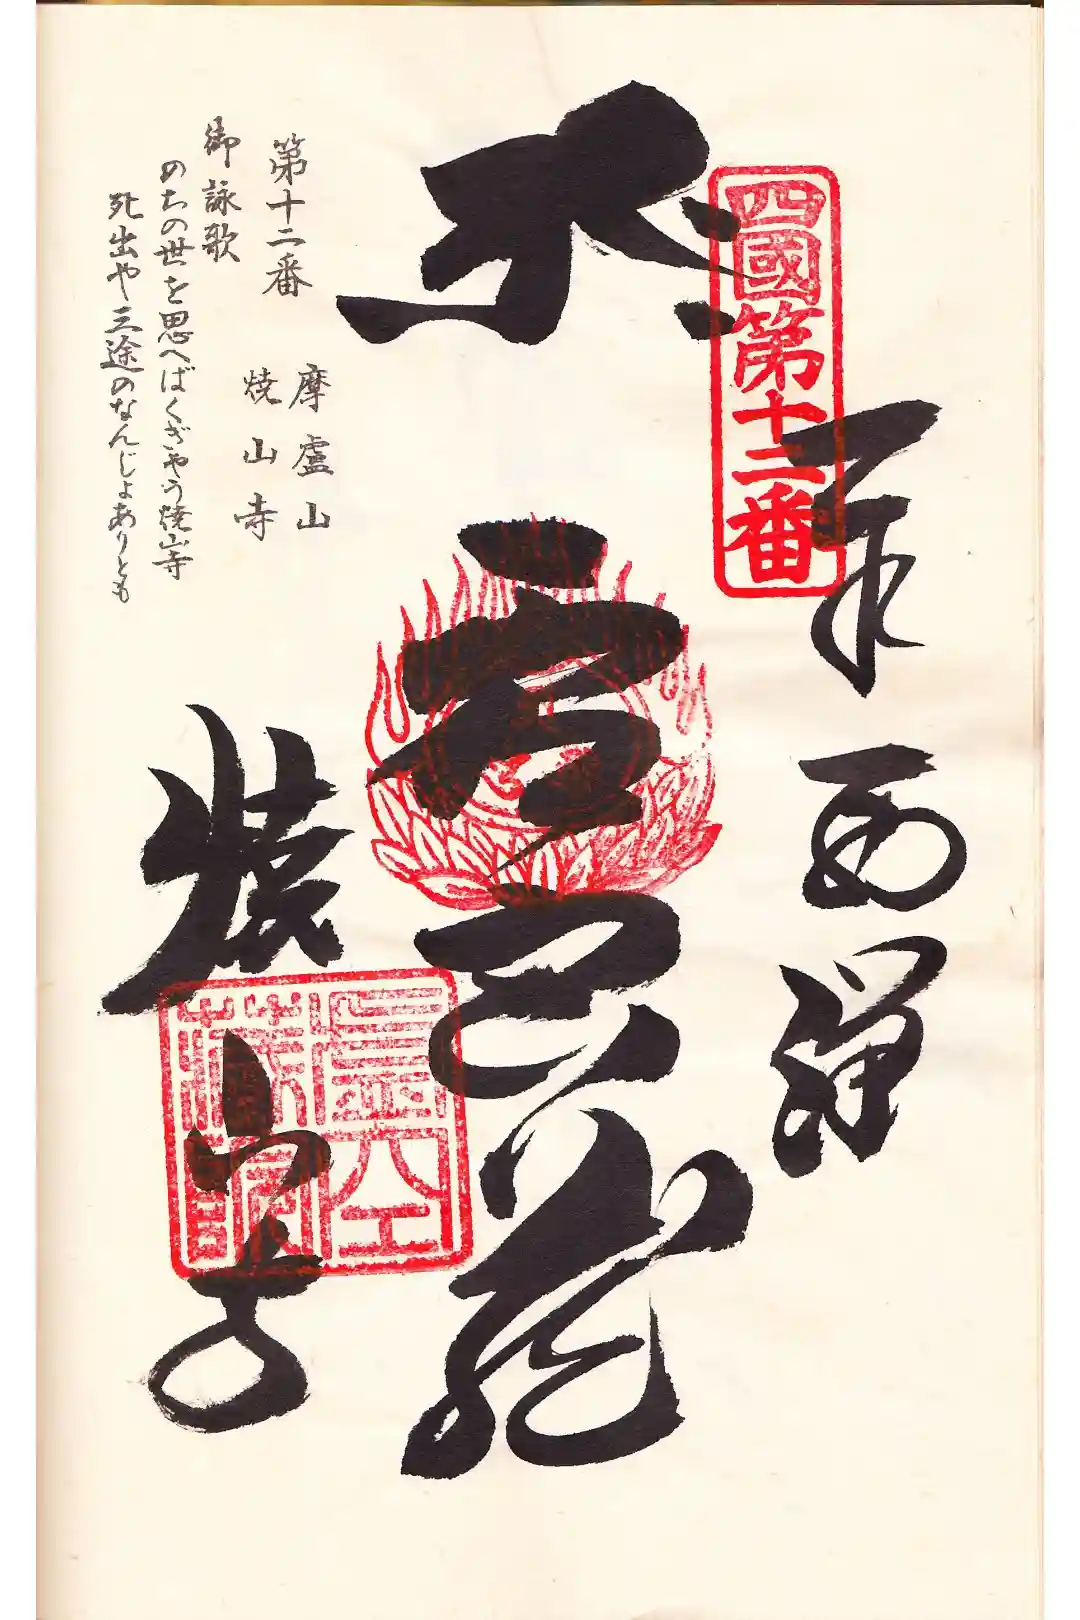 四國第十二番
虚空蔵
焼山寺
第十二番
摩盧山
焼山寺
御詠歌
のちの世を思へばくぎやう焼山寺
死出や三途のなんじよありとも